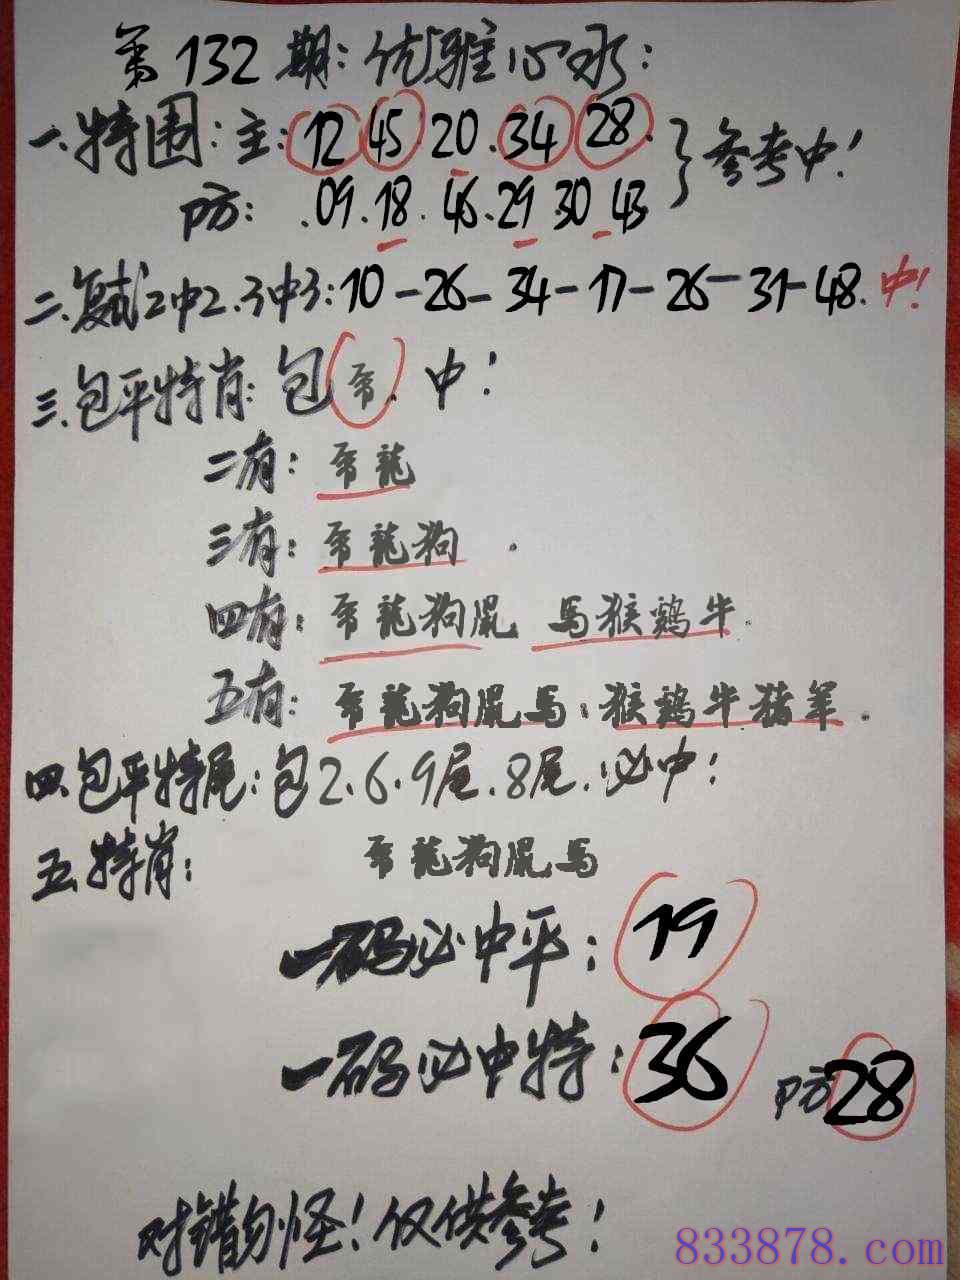 第132期：优雅心水：
一.特围：主：12 45 20.34 28.
防：.09.18.46.29 30 43
}参考中！
二.复试2中2.3中3：10-26-34-17-26-31-48.中！
三.包平特肖：包.中！
二有：龍
三有：龍狗.
四有：龍狗鼠 馬猴鷄牛.
五有：龍狗鼠馬.猴鷄牛猪羊.
四.包平特尾：包2.6.9尾.8尾.必中！
五.特肖：龍狗鼠馬
一码必中平：19
一码必中特：36 防28
对错勿怪！仅供参考！
833878.com